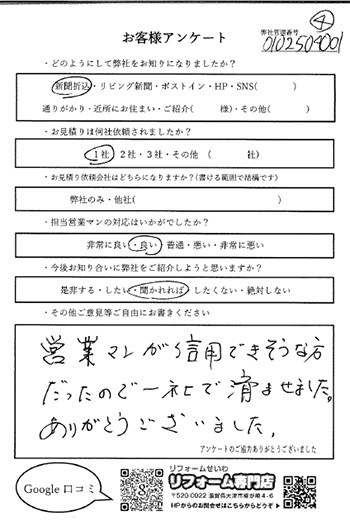 ④
お客様アンケート
弊社管理番号
0102504001
・どのようにして弊社をお知りになりましたか？
新聞折込・リビング新聞・ポストイン・HP・SNS( )
通りがかり・近所にお住まい・ご紹介( 様)・その他( )
・お見積りは何社依頼されましたか？
1社 2社・3社・その他 ( 社)
・お見積り依頼会社はどちらになりますか？(書ける範囲で結構です)
弊社のみ・他社( )
・担当営業マンの対応はいかがでしたか？
非常に良い・良い 普通・悪い・非常に悪い
・今後お知り合いに弊社をご紹介しようと思いますか？
是非する・したい・聞かれれば・したくない・絶対しない
・その他ご意見等ご自由にお書きください
営業マンが信用できそうな方
だったので一社で済ませました。
ありがとうございました。
アンケートのご協力ありがとうございました
Google 口コミ
リフォームせいわ
リフォーム専門店
〒520-0022 滋賀県大津市柳が崎4-6
HPからのお問合せはこちらからどうぞ▶